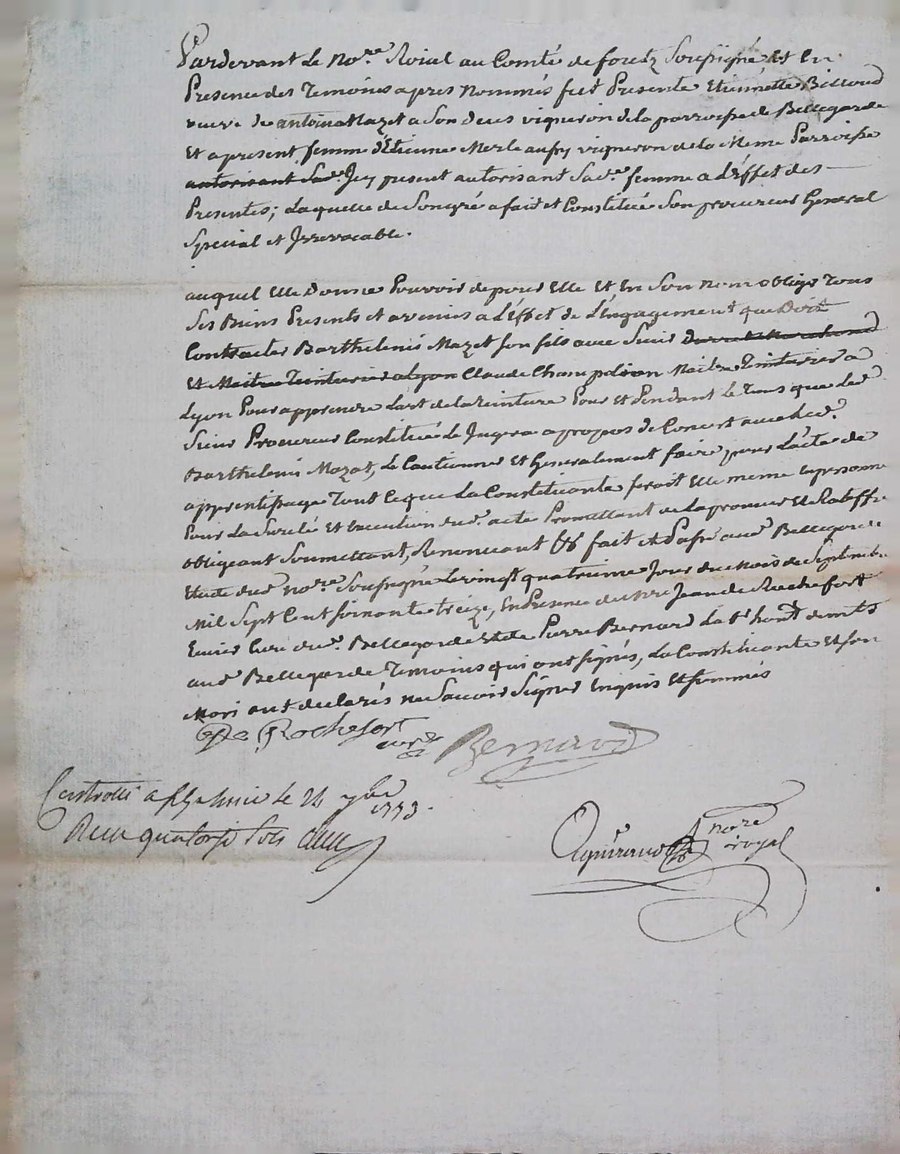 Pardevant Le No.re Roial au Comté de forêtz Soussigné Et En
Presence des Temoins apres nommés fut Presente Etiennette Billoud
veuve de antoine Mazet a Son deces vigneron de la parroisse de Bellegarde
Et apresent femme d'Etienne Merle aussy vigneron de la Meme Parroisse
autorisant Sad.e Jcy present autorisant Sad.e femme a L'effet des
Presentes; Laquelle de Son gré a fait et Constitué Son procureur General
Special et Jrrevocable.
auquel Elle Donne Pouvoir de pour Elle Et En Son nom obliger Tous
Ses Biens Presents et avenirs a L'Effet de L'Engagement que Doit
Contracter Barthelemis Mazet son fils avec Sieur
Et Maitre Teinturier a Lyon Claude Champ Maitre Teinturier a
Lyon Pour apprendre L'art de la Teinture Pour et Pendant le Tems que Led.
Sieur Procureur Constitué Le Jugera apropos de Concert avec Led.
Barthelemis Mazet, Le Cautionner Et Generalement faire pour L'acte de
apprentissage Tout Ce que La Constituante feroit Elle meme En personne
Pour La Sureté Et Execution dud. acte Promettant
obligeant Soumettant, Renoncant &c fait et Passé aud. Bellegarde
Etude dud. no.re Soussigné Le vingt quatrieme Jour du Mois de Septembre
Mil Sept Cent soixante treize, En Presence de M.re Jean de Rochefort
Curé dud. Bellegarde Et de Pierre Bernard
aud. Bellegarde Temoins qui ont signés, La Constituante Et son
Mari ont declarés ne Savoir Signer Enquis Et sommés
De Rochefort
curé
Bernard
Controllé a le 24 7bre
1773.
Recu quatorze Sols
no.re
royal